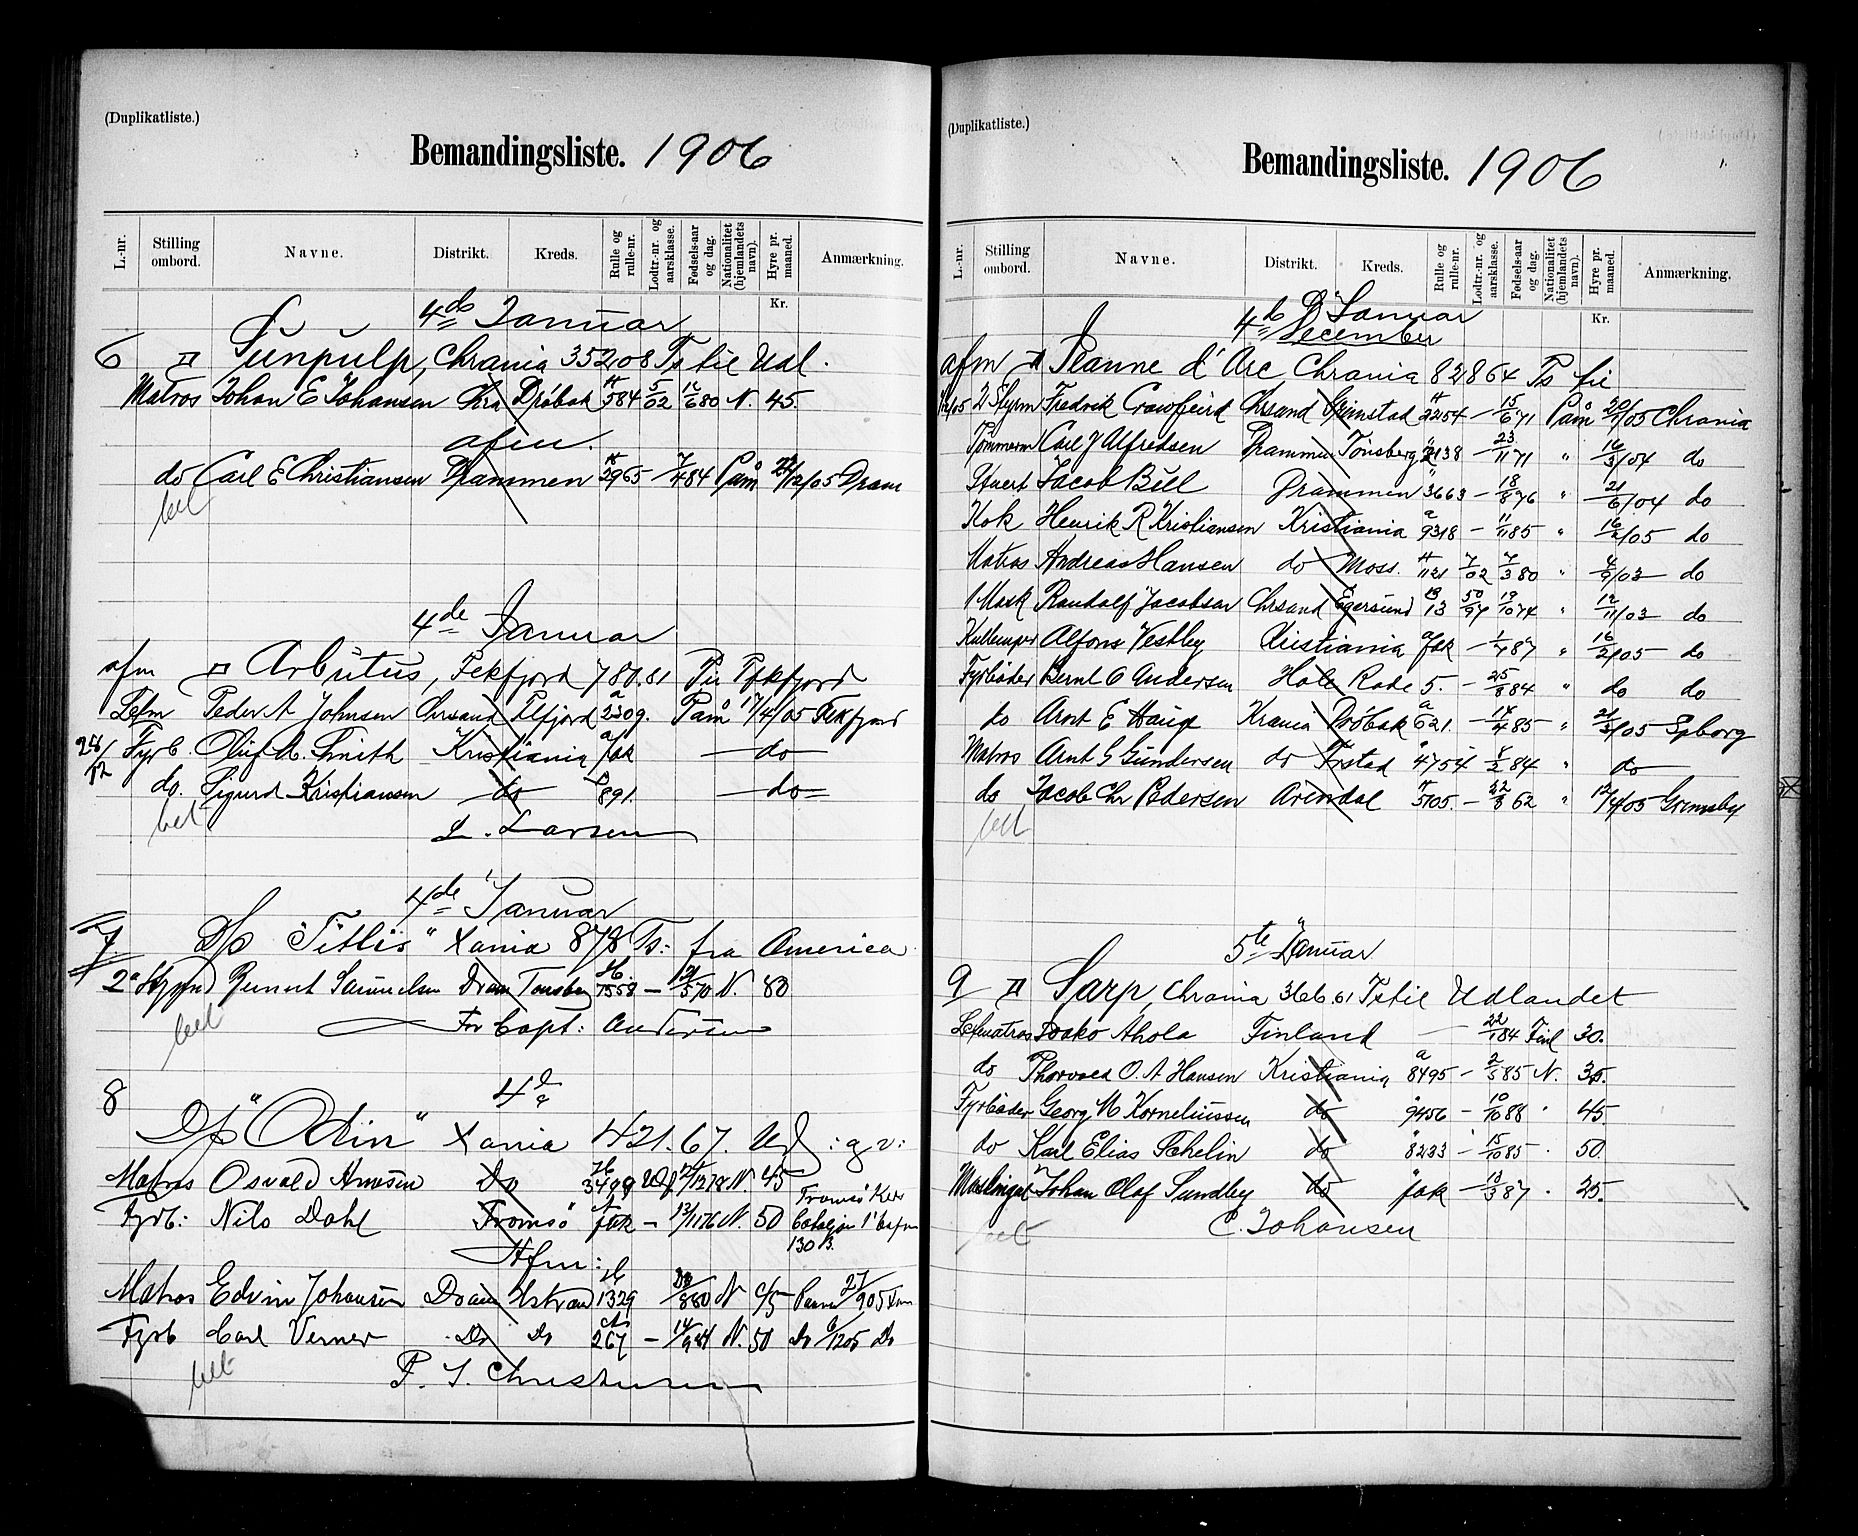 (Duplikatliste.)
Bemandingsliste. 1906
L.-nr. Stilling ombord. Navne. Distrikt. Kreds. Rulle og rulle-nr. Lodtr.-nr. og aarsklasse. Fødsels-aar og dag. Nationalitet (hjemlandets navn). Hyre pr. maaned. Anmærkning.
Kr.
4de Januar
6 Sunpulp, Chrania 35208 Ts til Udl.
Matros Johan E Johansen Chra Drøbak 584 5/02 12/6 80 N. 45.
afm.
do Carl E Christiansen Drammen 2965 - 7/4 84 Påm 29/12/05 Dram
4de Januar
afm Arbutus, Fekfjord 780.81
Letm Peder A Johnsen Chrsand 2309. Påm 17/4/05 Fekfjord
28/12 Fyrb. Oluf M. Smith Kristiania fak do
do. Sigurd Kristiansen do 891. do
L. Larsen
4de Januar
7 D/s "Titlis" Xania 878 Ts: fra America
2 Samuelsen Dram Tønsberg 1558 - 21/5 70 N. 80
For Capt: Andersen
8 4de
D/s "Odin" Xania 421.67. Ud : g v:
Matros Osvald Arnesen Do 3499 24/12 78 N. 45
Fyrb: Nils Dahl Tromsø fak - 13/11 76 N. 50
130 B.
Afm:
Matros Edvin Johansen Dram 1329 /8 80 N
Fyrb Carl Verner Do Do 267 - 14/9 84 N. 50 Do 6/12 05 Do
P. S. Christensen
(Duplikatliste.)
Bemandingsliste. 1906
L.-nr. Stilling ombord. Navne. Distrikt. Kreds. Rulle og rulle-nr. Lodtr.-nr. og aarsklasse. Fødsels-aar og dag. Nationalitet (hjemlandets navn). Hyre pr. maaned. Anmærkning.
Kr.
4de Januar
December
afm Jeanne d'Arc Chrania 82864 Ts til
2 Styrm Fredrik Crawfeurd Chrsand Grimstad 2254 - 15/6 71 Påm 20/ /05 Chrania
Tømmerm Carl J Alfredsen Drammen Tønsberg 2138 - 23/11 71 " 16/3/04 do
Stuert Jacob Bull Drammen 3663 - 18/8 76 " 21/6/04 do
Kok Henrik R Kristiansen Kristiania 9318 - 11/11 85 " 16/2/05 do
Matros Andreas Hansen do Moss. 1121 7/02 7/3 80 " 4/9/03 do
1 Mask Randolf Jacobsen Chrsand Egersund 13 50/97 19/10 74 " 12/11/03 do
Kullemper Alfons Vestby Kristiania fak - 1/4 87 " 16/2/05 do
Fyrbøder Bernt O Andersen Hole Rade 5. - 25/8 84 " do do
do Arnt E Hauge Krania Drøbak 621. - 14/4 85 " 21/3/05 Spborg
Matros Arnt G Gundersen do Frstad 4754 - /2 84 " do
do Jacob Chr Pedersen Arendal 5705. - 22/8 62 " 12/4/05 Grimsby
5te Januar
9 Sarp, Chrania 366.61 Ts til Udlandet
Letmatros Ahola Finland - 22/1 84 Finl 30.
do Thorvald O. A Hansen Kristiania 8495 - 2/5 85 N. 35.
Fyrbøder Georg M Korneliussen do 9456 - 10/10 88 " 45.
do Karl Elias Schelin do 8233 - 15/10 85 . 50.
Johan Olaf Sundby do fak - 13/3 87 . 25.
C. Johansen